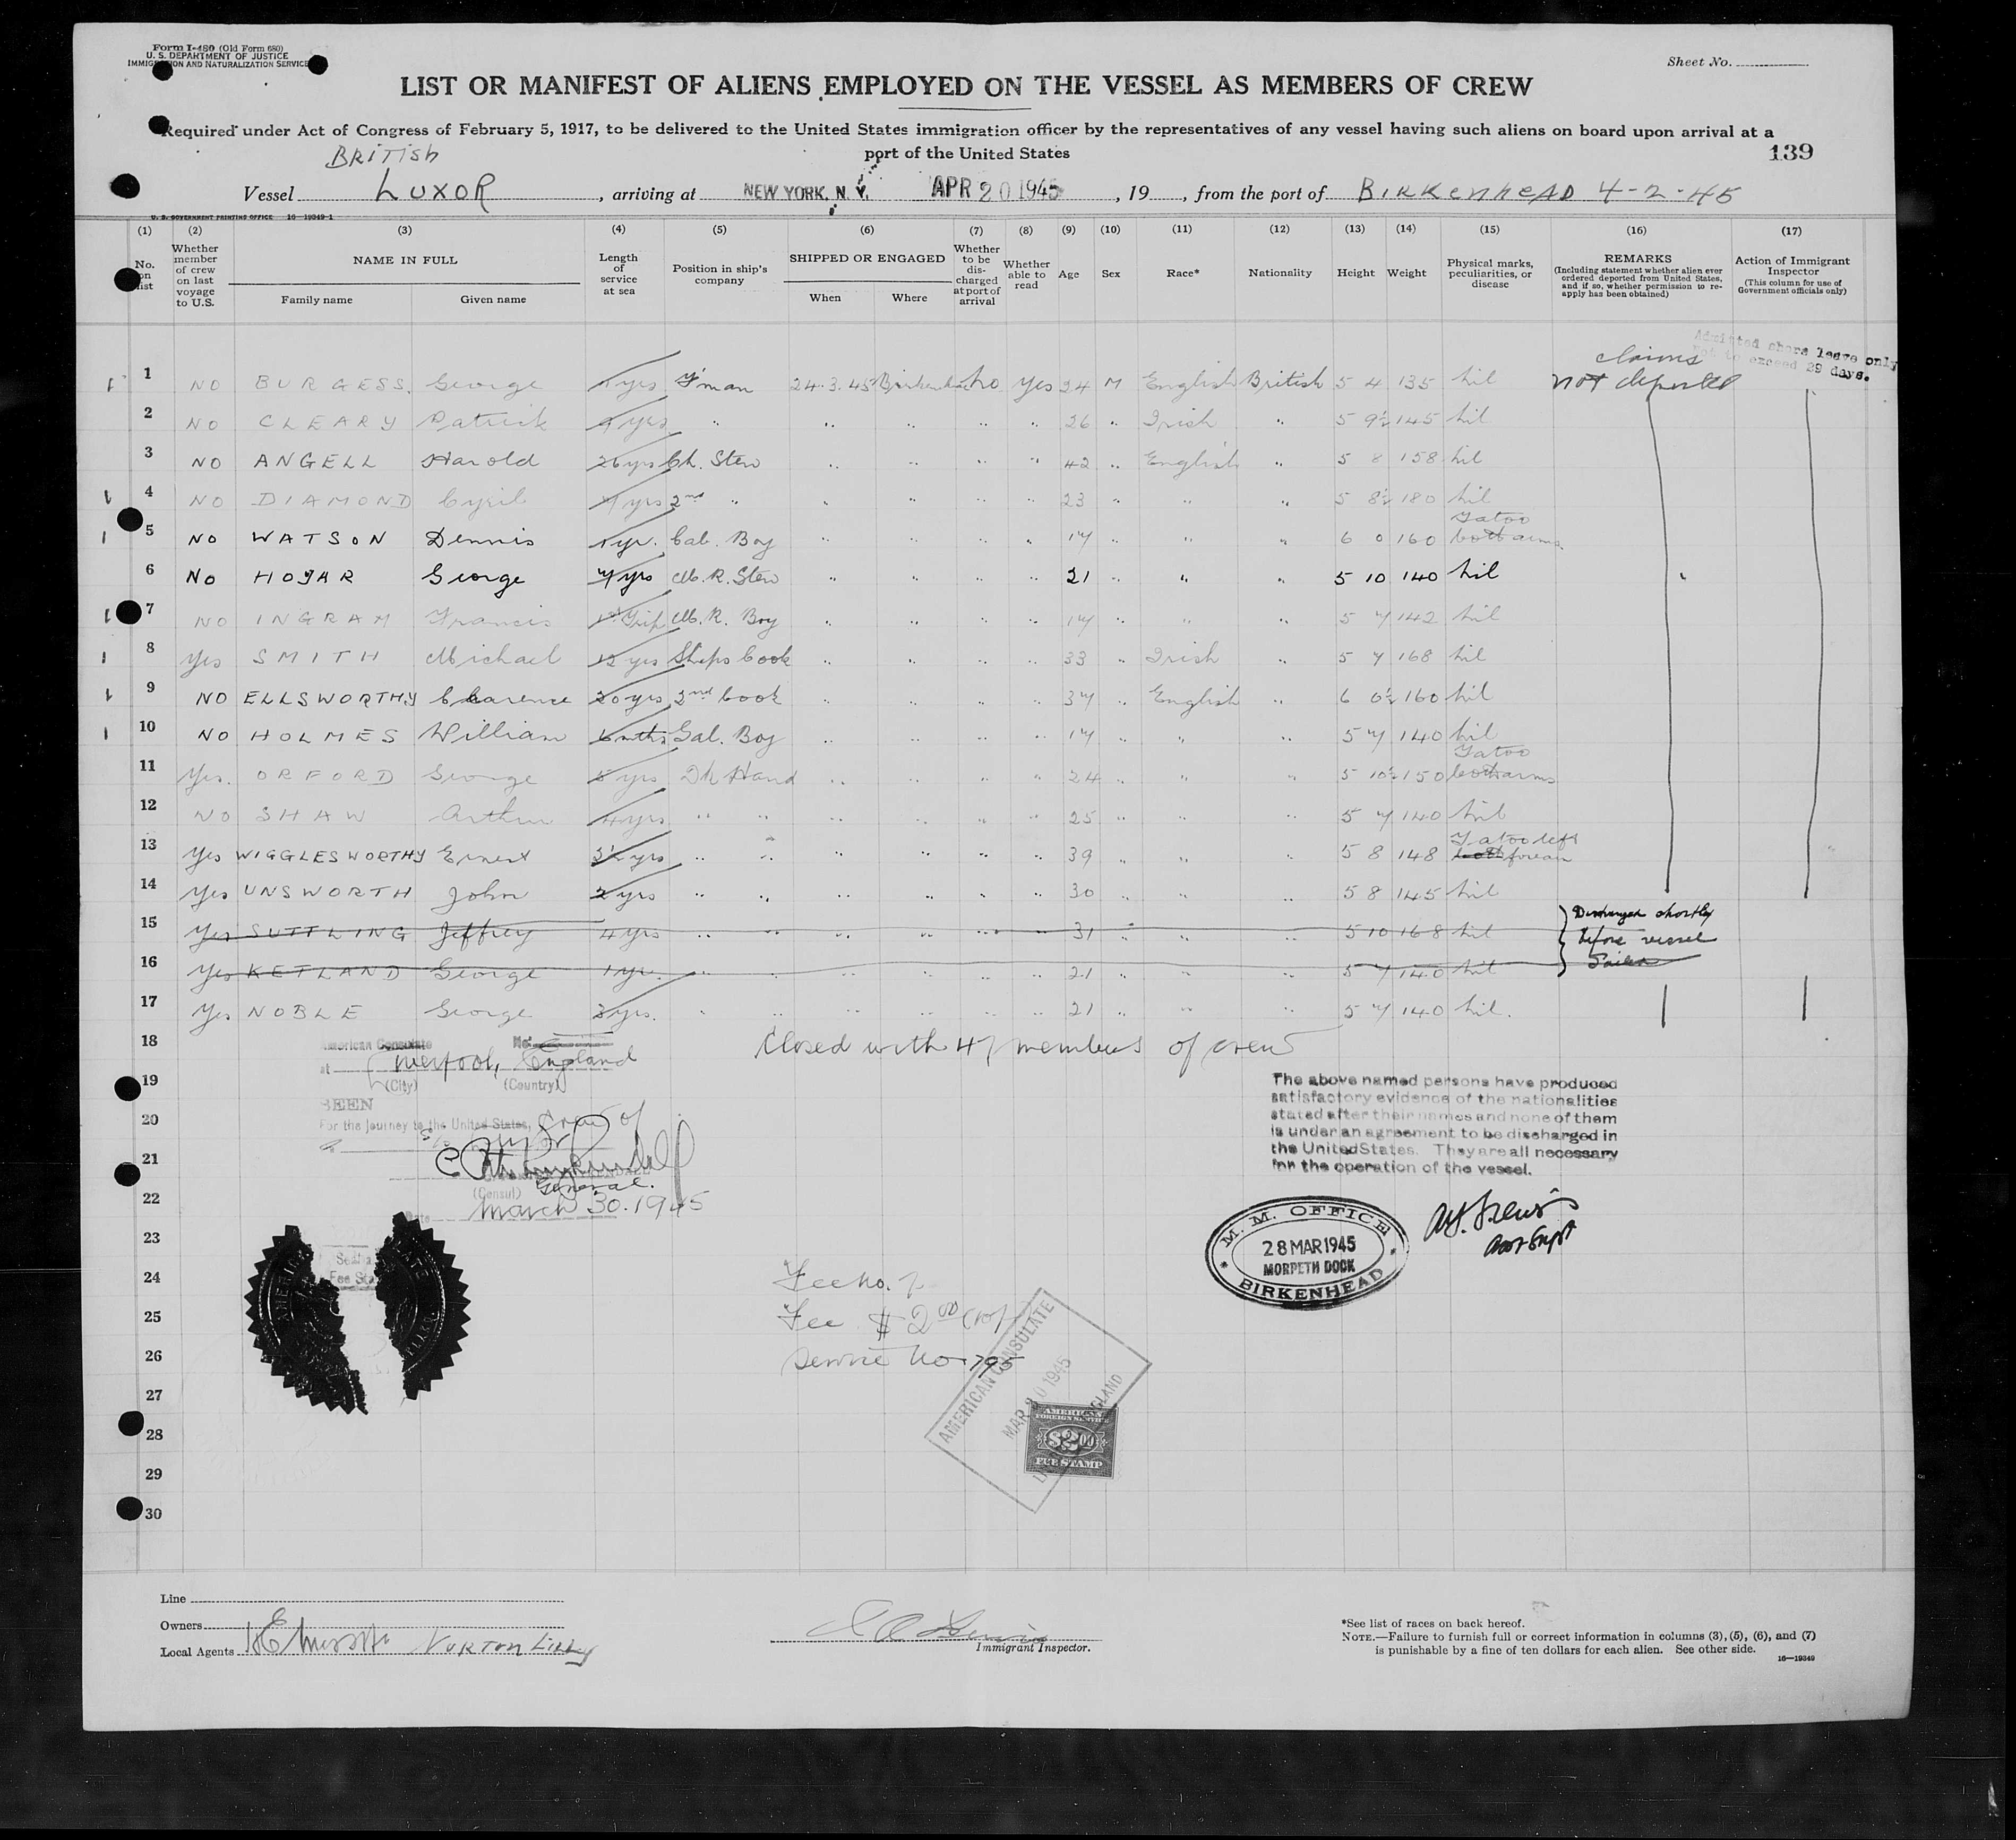 Form I-480 (Old Form 680)
U. S. DEPARTMENT OF JUSTICE
IMMIGRATION AND NATURALIZATION SERVICE
Sheet No.
LIST OR MANIFEST OF ALIENS EMPLOYED ON THE VESSEL AS MEMBERS OF CREW
Required under Act of Congress of February 5, 1917, to be delivered to the United States immigration officer by the representatives of any vessel having such aliens on board upon arrival at a
port of the United States
139
BRITISH
Vessel LUXOR , arriving at NEW YORK, N. Y. APR 20 1945 , 19 , from the port of BIRKENHEAD 4-2-45
U. S. GOVERNMENT PRINTING OFFICE 16-19349-1
(1) (2) (3) (4) (5) (6) (7) (8) (9) (10) (11) (12) (13) (14) (15) (16) (17)
No. on list
Whether member of crew on last voyage to U.S.
NAME IN FULL
Family name Given name
Length of service at sea
Position in ship's company
SHIPPED OR ENGAGED
When Where
Whether to be discharged at port of arrival
Whether able to read
Age
Sex
Race*
Nationality
Height
Weight
Physical marks, peculiarities, or disease
REMARKS
(Including statement whether alien ever ordered deported from United States, and if so, whether permission to reapply has been obtained)
Action of Immigrant Inspector
(This column for use of Government officials only)
Admitted shore leave only
Not to exceed 29 days.
claims
not deported
1 NO BURGESS. George yrs F'man 24.3.45 Birkenhead no Yes 24 M English British 5 4 135 nil
2 NO CLEARY Patrick yrs " " " " " 26 " Irish " 5 9½ 145 nil
3 NO ANGELL Harold 26 yrs Ch. Stew " " " " 42 " English " 5 8 158 nil
4 NO DIAMOND Cyril yrs 2nd " " " " " 23 " " " 5 8½ 180 nil
5 NO WATSON Dennis 1 yr. Cab. Boy " " " " 17 " " " 6 0 160 Tatoo both arms
6 NO HOJAR George yrs M.R. Stew " " " " 21 " " " 5 10 140 nil
7 NO INGRAM Francis 1st Trip M.R. Boy " " " " 17 " " " 5 7 142 nil
8 Yes SMITH Michael 12 yrs Ships Cook " " " " 33 " Irish " 5 7 168 nil
9 NO ELLSWORTHY Clarence 20 yrs 2nd Cook " " " " 37 " English " 6 0½ 160 nil
10 NO HOLMES William 6 mths Gal. Boy " " " " 17 " " " 5 7 140 nil
11 Yes. ORFORD George 5 yrs Dk Hand " " " " 24 " " " 5 10½ 150 Tatoo both arms
12 NO SHAW Arthur 4 yrs " " " " " " 25 " " " 5 7 140 nil
13 Yes WIGGLESWORTHY Ernest 3½ yrs " " " " " " 39 " " " 5 8 148 Tatoo left forearm
14 Yes UNSWORTH John 2 yrs " " " " " " 30 " " " 5 8 145 nil
15 Yes SUTTLING Jeffrey 4 yrs " " " " " " 31 " " " 5 10 168 nil
16 Yes KETLAND George 1 yr. " " " " " " 21 " " " 5 7 140 nil
Discharged shortly
before vessel
Sailed
17 Yes NOBLE George 3 yrs. " " " " " " 21 " " " 5 7 140 nil.
18
19
20
21
22
23
24
25
26
27
28
29
30
Closed with 47 members of crew
American Consulate No.
at Liverpool, England
(City) (Country)
SEEN
For the journey to the United States,
(Consul)
General.
Date March 30. 1945
The above named persons have produced
satisfactory evidence of the nationalities
stated after their names and none of them
is under an agreement to be discharged in
the United States. They are all necessary
for the operation of the vessel.
M. M. OFFICE
28 MAR 1945
MORPETH DOCK
BIRKENHEAD
Fee No.
Fee $ 2.00
Service No 795
AMERICAN CONSULATE
MAR 30 1945
AMERICAN
FOREIGN SERVICE
$2.00
FEE STAMP
Line
Owners
Local Agents NORTON LILLY
Immigrant Inspector.
*See list of races on back hereof.
NOTE.—Failure to furnish full or correct information in columns (3), (5), (6), and (7)
is punishable by a fine of ten dollars for each alien. See other side.
16—19349